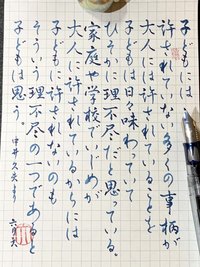 子どもには
許されていない多くの事柄が
大人には許されていることを
子どもは日々味わっていて
ひそかに理不尽だと思っている。
家庭や学校でいじめが
大人に許されているからには
子どもに許されないのも
そういう理不尽の一つであると
子どもは思う。
中井久夫より